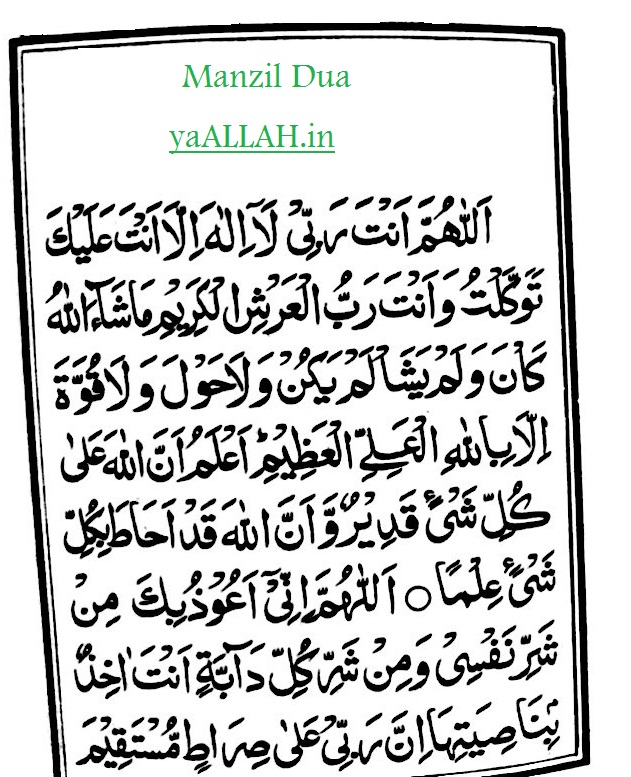 Manzil Dua
yaALLAH.in
اَللّٰهُمَّ اَنْتَ رَبِّیْ لَآ اِلٰهَ اِلَّا اَنْتَ عَلَيْكَ
تَوَكَّلْتُ وَاَنْتَ رَبُّ الْعَرْشِ الْكَرِيْمِ مَاشَآءَ اللهُ
كَانَ وَلَمْ يَشَأْ لَمْ يَكُنْ وَلَاحَوْلَ وَلَا قُوَّةَ
اِلَّا بِاللهِ الْعَلِیِّ الْعَظِيْمِ ؕ اَعْلَمُ اَنَّ اللهَ عَلٰی
كُلِّ شَیْءٍ قَدِيْرٌ وَّاَنَّ اللهَ قَدْ اَحَاطَ بِكُلِّ
شَیْءٍ عِلْمًا ○ اَللّٰهُمَّ اِنِّیْٓ اَعُوْذُ بِكَ مِنْ
شَرِّ نَفْسِیْ وَمِنْ شَرِّ كُلِّ دَآبَّةٍ اَنْتَ اٰخِذٌۢ
بِنَاصِيَتِهَا اِنَّ رَبِّیْ عَلٰی صِرَاطٍ مُّسْتَقِيْمٍ